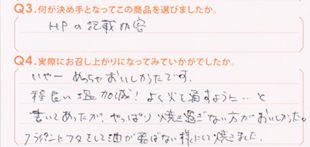 Q3.何が決め手となってこの商品を選びましたか。
HPの記載内容
Q4.実際にお召し上がりになってみていかがでしたか。
いやー めっちゃおいしかたです。
程良い塩加減！よく火を通すように…と
書いてあったが、やっぱり焼き過ぎない方がおいしかった。
フライパンにフタをして油が飛ばない様にして焼きました。